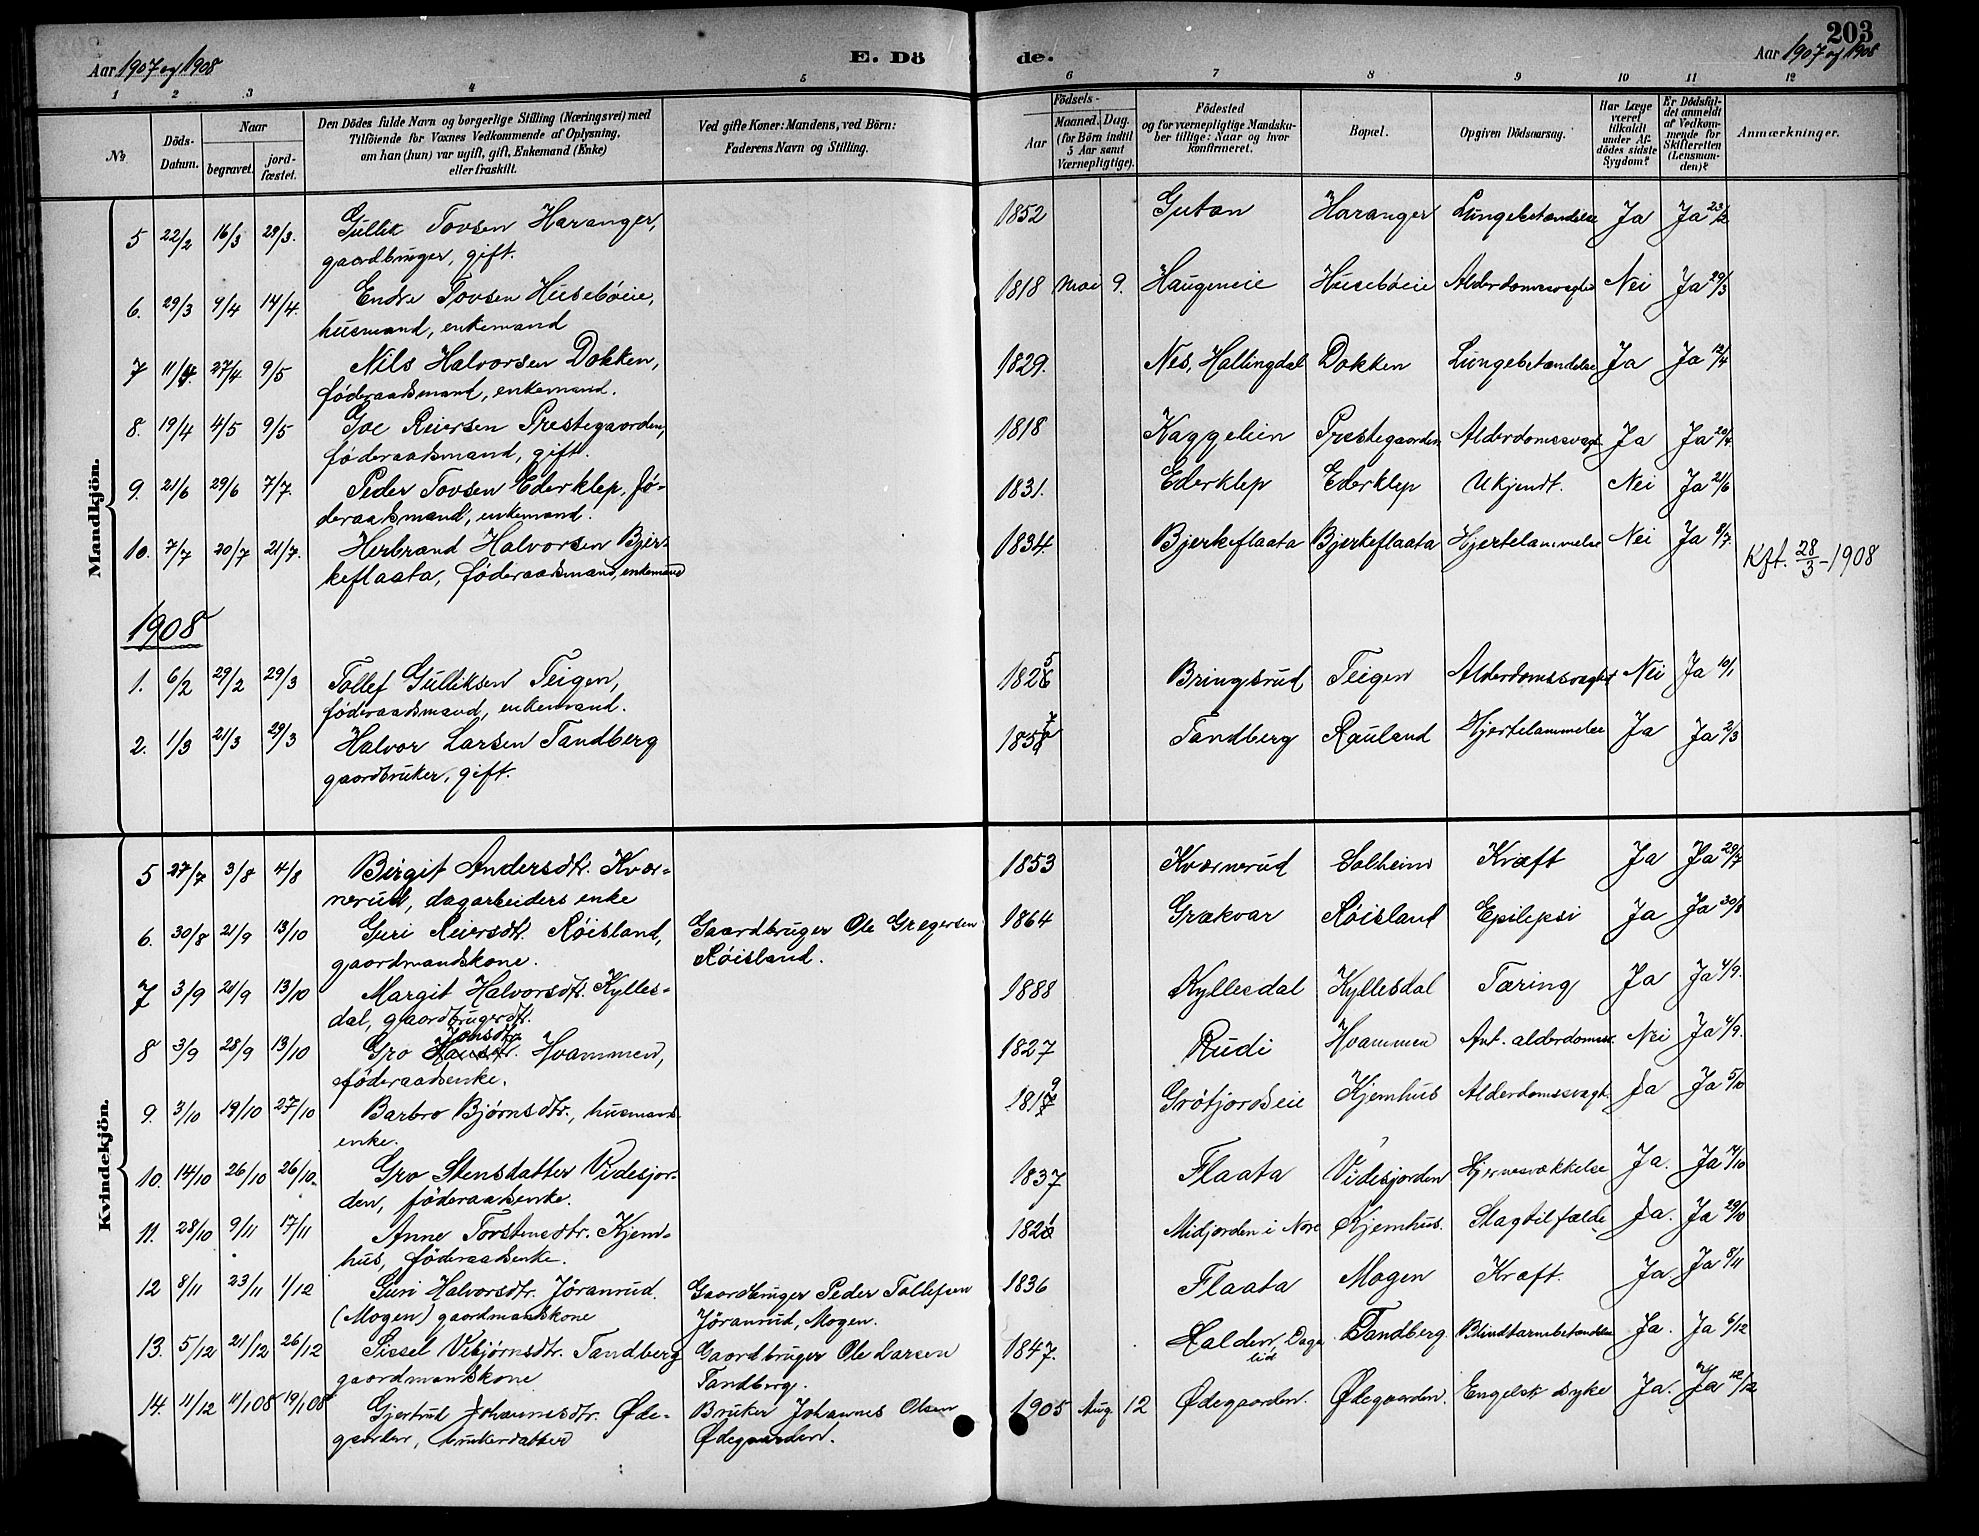 203
Aar 1907 og 1908
E. Dö
de.
Aar 1907 og 1908
1 2 3 4 5 6 7 8 9 10 11 12
No
Döds-Datum.
Naar
begravet.
jord-fæstet.
Den Dödes fulde Navn og borgerlige Stilling (Næringsvei) med
Tilföiende for Voxnes Vedkommende af Oplysning,
om han (hun) var ugift, gift, Enkemand (Enke)
eller fraskilt.
Ved gifte Koner: Mandens, ved Börn:
Faderens Navn og Stilling.
Födsels-
Aar
Maaned. Dag.
(for Börn indtil
5 Aar samt
Værnepligtige).
Födested
og for værnepligtige Mandska-
ber tillige: Naar og hvor
konfirmeret.
Bopæl.
Opgiven Dödsaarsag.
Har Læge
været
tilkaldt
under Af-
dödes sidste
Sygdom?
Er Dödsful-
det anmeldt
af Vedkom-
mende for
Skifteretten
(Lensman-
den)?
Anmærkninger.
Mandkjön.
5 22/2 16/3 29/3. Gullik Tovsen Haranger, 1852 Guton Haranger Lungebetændelse Ja Ja 23/2
gaardbruger, gift.
6. 29/3 9/4 14/4. Endre Tovsen Husebøeie, 1818 Mai 9. Haugeneie Husebøeie Alderdomssvaghed Nei Ja 29/3
husmand, enkemand
7 11/4. 27/4 9/5 Nils Halvorsen Dokken, 1829. Nes, Hallingdal Dokken Lungebetændelse Ja Ja 12/4
føderaadsmand, enkemand.
8. 19/4 4/5 9/5 Goe Reiersen Prestegaarden, 1818 Kaggelien Prestegaarden Alderdomssvagh. Ja Ja 20/4
føderaadsmand, gift.
9. 21/6 29/6 7/7. Peder Tovsen Ederklep, fø- 1831. Ederklep Ederklep Ukjendt. Nei Ja 21/6
deraadsmand, enkemand.
10. 7/7 20/7 21/7. Herbrand Halvorsen Bjer- 1834. Bjerkeflaata Bjerkeflaata Hjertelammelse Nei Ja 8/7. Kft. 28/3-1908
keflaata, føderaadsmand, enkemand
1908
1. 6/2 29/2 29/3 Tollef Gulliksen Teigen, 1825 Bringsrud Teigen Alderdomssvaghed Nei Ja 10/1
føderaadsmand, enkemand.
2. 1/3 21/3 29/3 Halvor Larsen Tandberg 1857 Tandberg Rauland Hjertelammelse Ja Ja 2/3
gaardbruker, gift.
Kvindekjön.
5 27/7 3/8 4/8 Birgit Andersdtr. Kvær- 1853 Kværnerud Solheim Kræft Ja Ja 29/7
nerud, dagarbeiders enke
6. 30/8 21/9 13/10 Guri Reiersdtr. Røisland, Gaardbruger Ole Gregersen 1864 Grækvar Røisland Epilepsi Ja Ja 30/8
gaardmandskone. Røisland.
7 3/9 21/9 13/10 Margit Halvorsdtr. Kylles- 1888 Kyllesdal Kyllesdal Tæring Ja Ja 4/9.
dal, gaardbrugerdt.
8 3/9 28/9 13/10 Gro Jonsdtr. Hvammen, 1827 Rudi Hvammen Ant. alderdomss. Nei Ja 4/9.
føderaadsenke.
9. 3/10 19/10 27/10 Barbro Bjørnsdtr., husmands 1819 Grøtjordseie Kjemhus Alderdomssvagh. Ja Ja 5/10
enke.
10. 14/10 26/10 26/10 Gro Stensdatter Videsjor- 1837 Flaata Videsjorden Hjernesvækkelse Ja. Ja 14/10
den, føderaadsenke.
11. 28/10 9/11 17/11 Anne Torstensdtr. Kjem- 1826 Midjorden i Nore Kjemhus. Slagtilfælde Ja. Ja 29/10
hus, føderaadsenke.
12 8/11 23/11 1/12 Guri Halvorsdtr. Jöranrud. Gaardbruger Peder Tollefsen 1836 Flaata Mogen Kræft. Ja Ja 8/11
(Mogen) gaardmandskone Jöranrud, Mogen.
13. 5/12 21/12 26/12 Sissel Vebjørnsdtr. Tandberg Gaardbruger Ole Larsen 1847. Halden, Daga Tandberg Blindtarmbetændelse Ja. Ja 6/12
gaardmandskone Tandberg. lid
14. 11/12 11/1 08 19/1 08 Gjertrud Johannesdtr. Øde- Bruker Johannes Olsen 1905 Aug. 12 Ødegaarden. Ødegaarden. Engelsk syke Ja. Ja 12/12
gaarden, brukerdatter Ødegaarden.